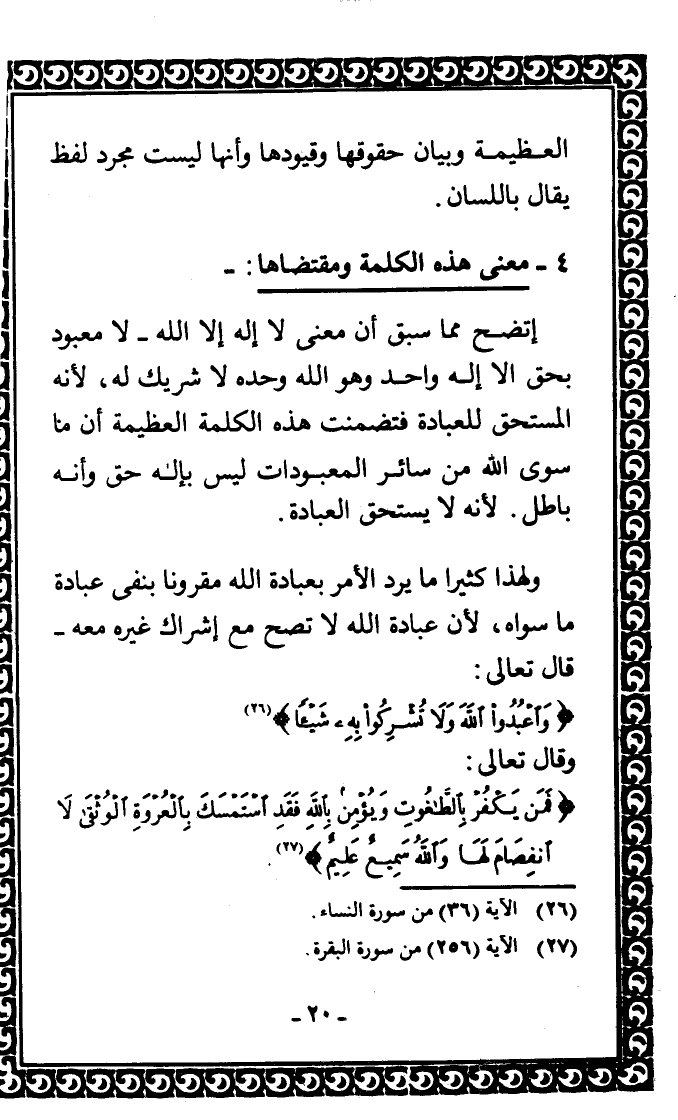 العـظيمـة وبيان حقوقها وقيودها وأنها ليست مجرد لفظ
يقال باللسان.
٤ ـ معنى هذه الكلمة ومقتضاها: ـ
إتضـح مما سبق أن معنى لا إله إلا الله ـ لا معبود
بحق الا إلـه واحـد وهو الله وحده لا شريك له، لأنه
المستحق للعبادة فتضمنت هذه الكلمة العظيمة أن ما
سوى الله من سائـر المعبـودات ليس بإلـه حق وأنـه
باطل. لأنه لا يستحق العبادة.
ولهذا كثيرا ما يرد الأمر بعبادة الله مقرونا بنفى عبادة
ما سواه، لأن عبادة الله لا تصح مع إشراك غيره معه ـ
قال تعالى:
﴿ وَٱعْبُدُوا۟ ٱللَّهَ وَلَا تُشْـرِكُوا۟ بِهِۦ شَيْـًٔا ﴾(٢٦)
وقال تعالى:
﴿ فَمَن يَـكْفُرْ بِٱلطَّـٰغُوتِ وَيُؤْمِنۢ بِٱللَّهِ فَقَدِ ٱسْتَمْسَكَ بِٱلْعُرْوَةِ ٱلْوُثْقَىٰ لَا
ٱنفِصَامَ لَهَـا وَٱللَّهُ سَمِيـعٌ عَلِيمٌ ﴾(٢٧).
(٢٦) الآية (٣٦) من سورة النساء.
(٢٧) الآية (٢٥٦) من سورة البقرة.
ـ ٢٠ ـ